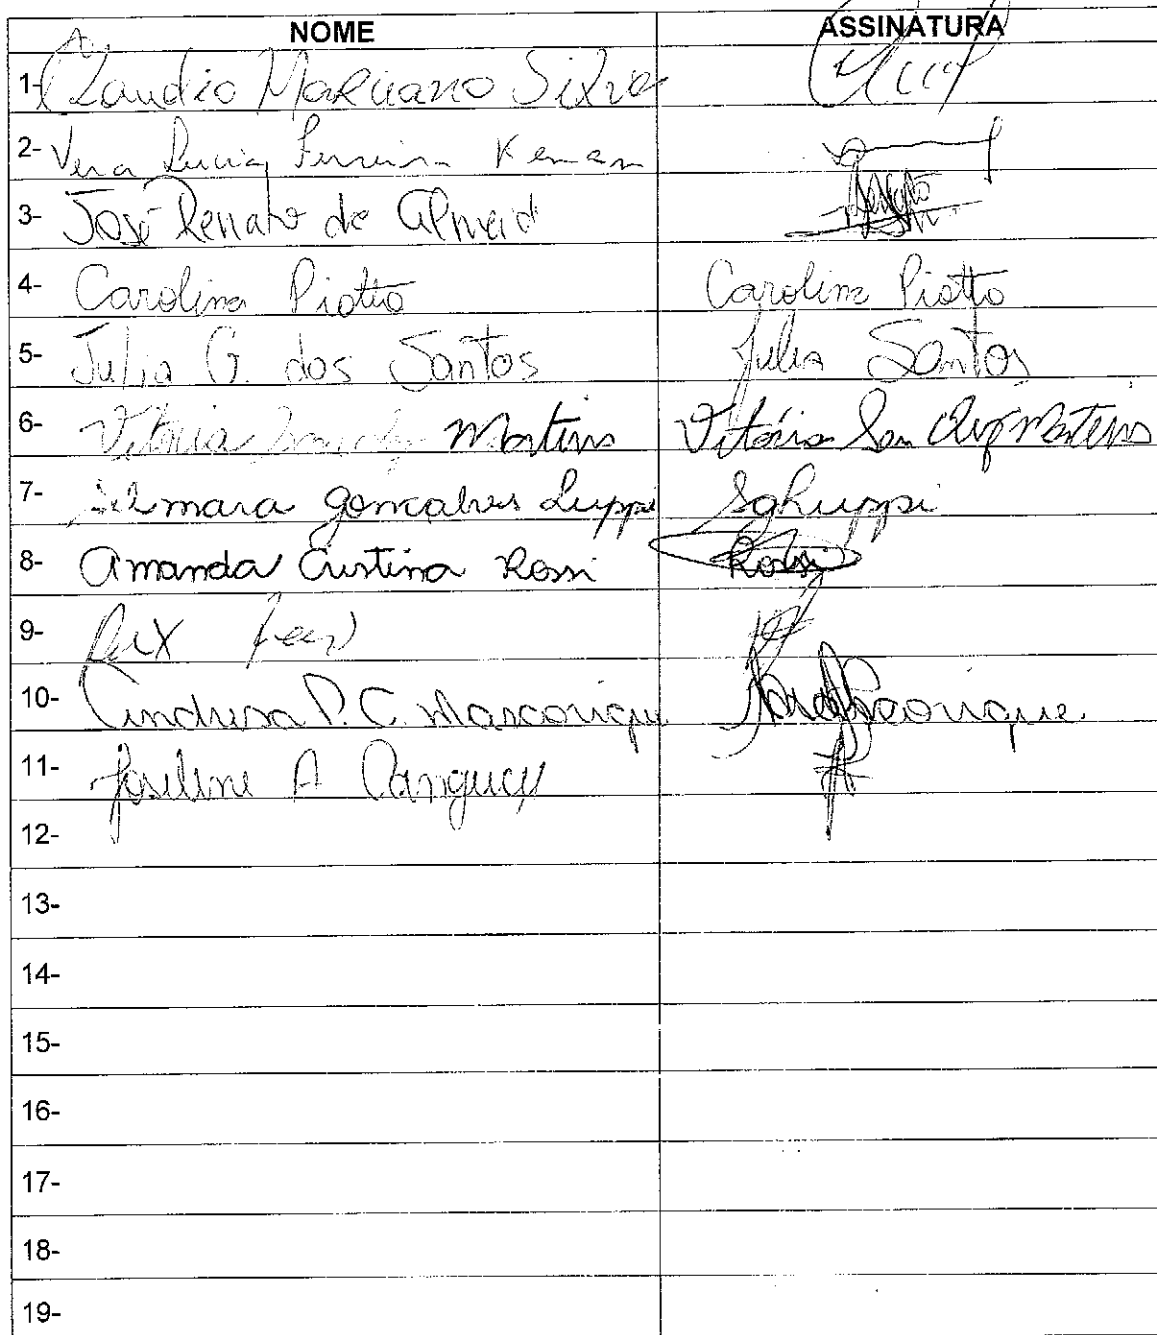 NOME ASSINATURA
1- Claudio Marciano Silva
2- Vera Lucia Ferreira
3- José Renato de Almeid Renato
4- Carolina Piotto Carolina Piotto
5- Julia G. dos Santos Julia Santos
6- Vitória Martins Vitória Martins
7- Silmara Gonçalves Luppi SgLuppi
8- Amanda Cristina Rossi Rossi
9-
10- Andresa P. C. Marcorique
11- Joselene A Canguçu
12-
13-
14-
15-
16-
17-
18-
19-